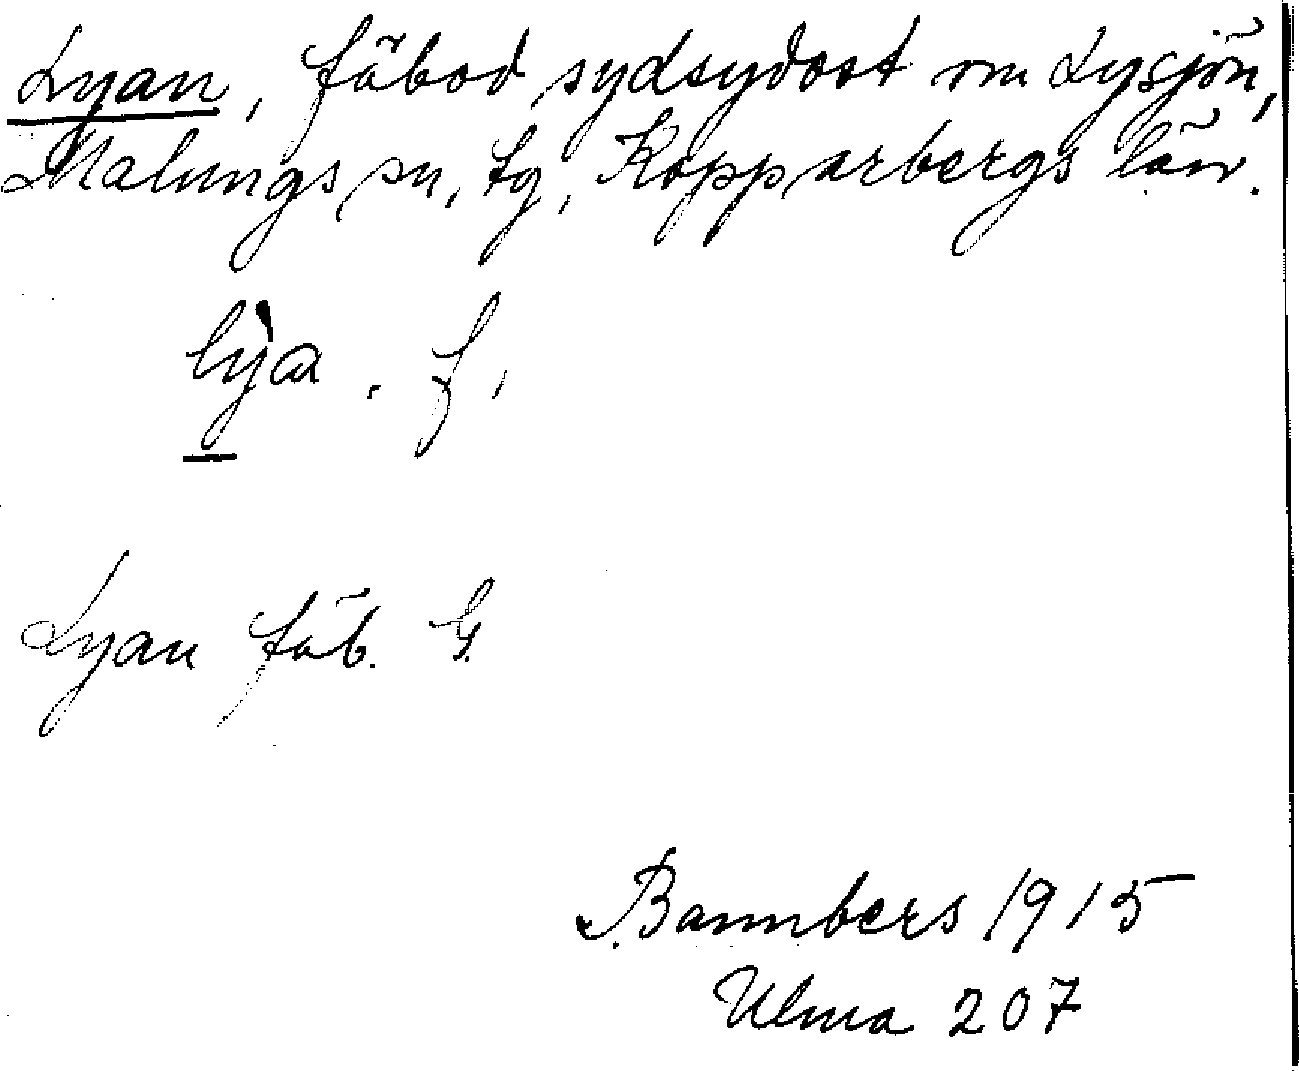 Lyan, fäbod sydsydost om Lysjön,
Malungs sn, tg, Kopparbergs län.
lỳa. f.
Lyan fäb. G.
Bannbers 1915
Ulma 207